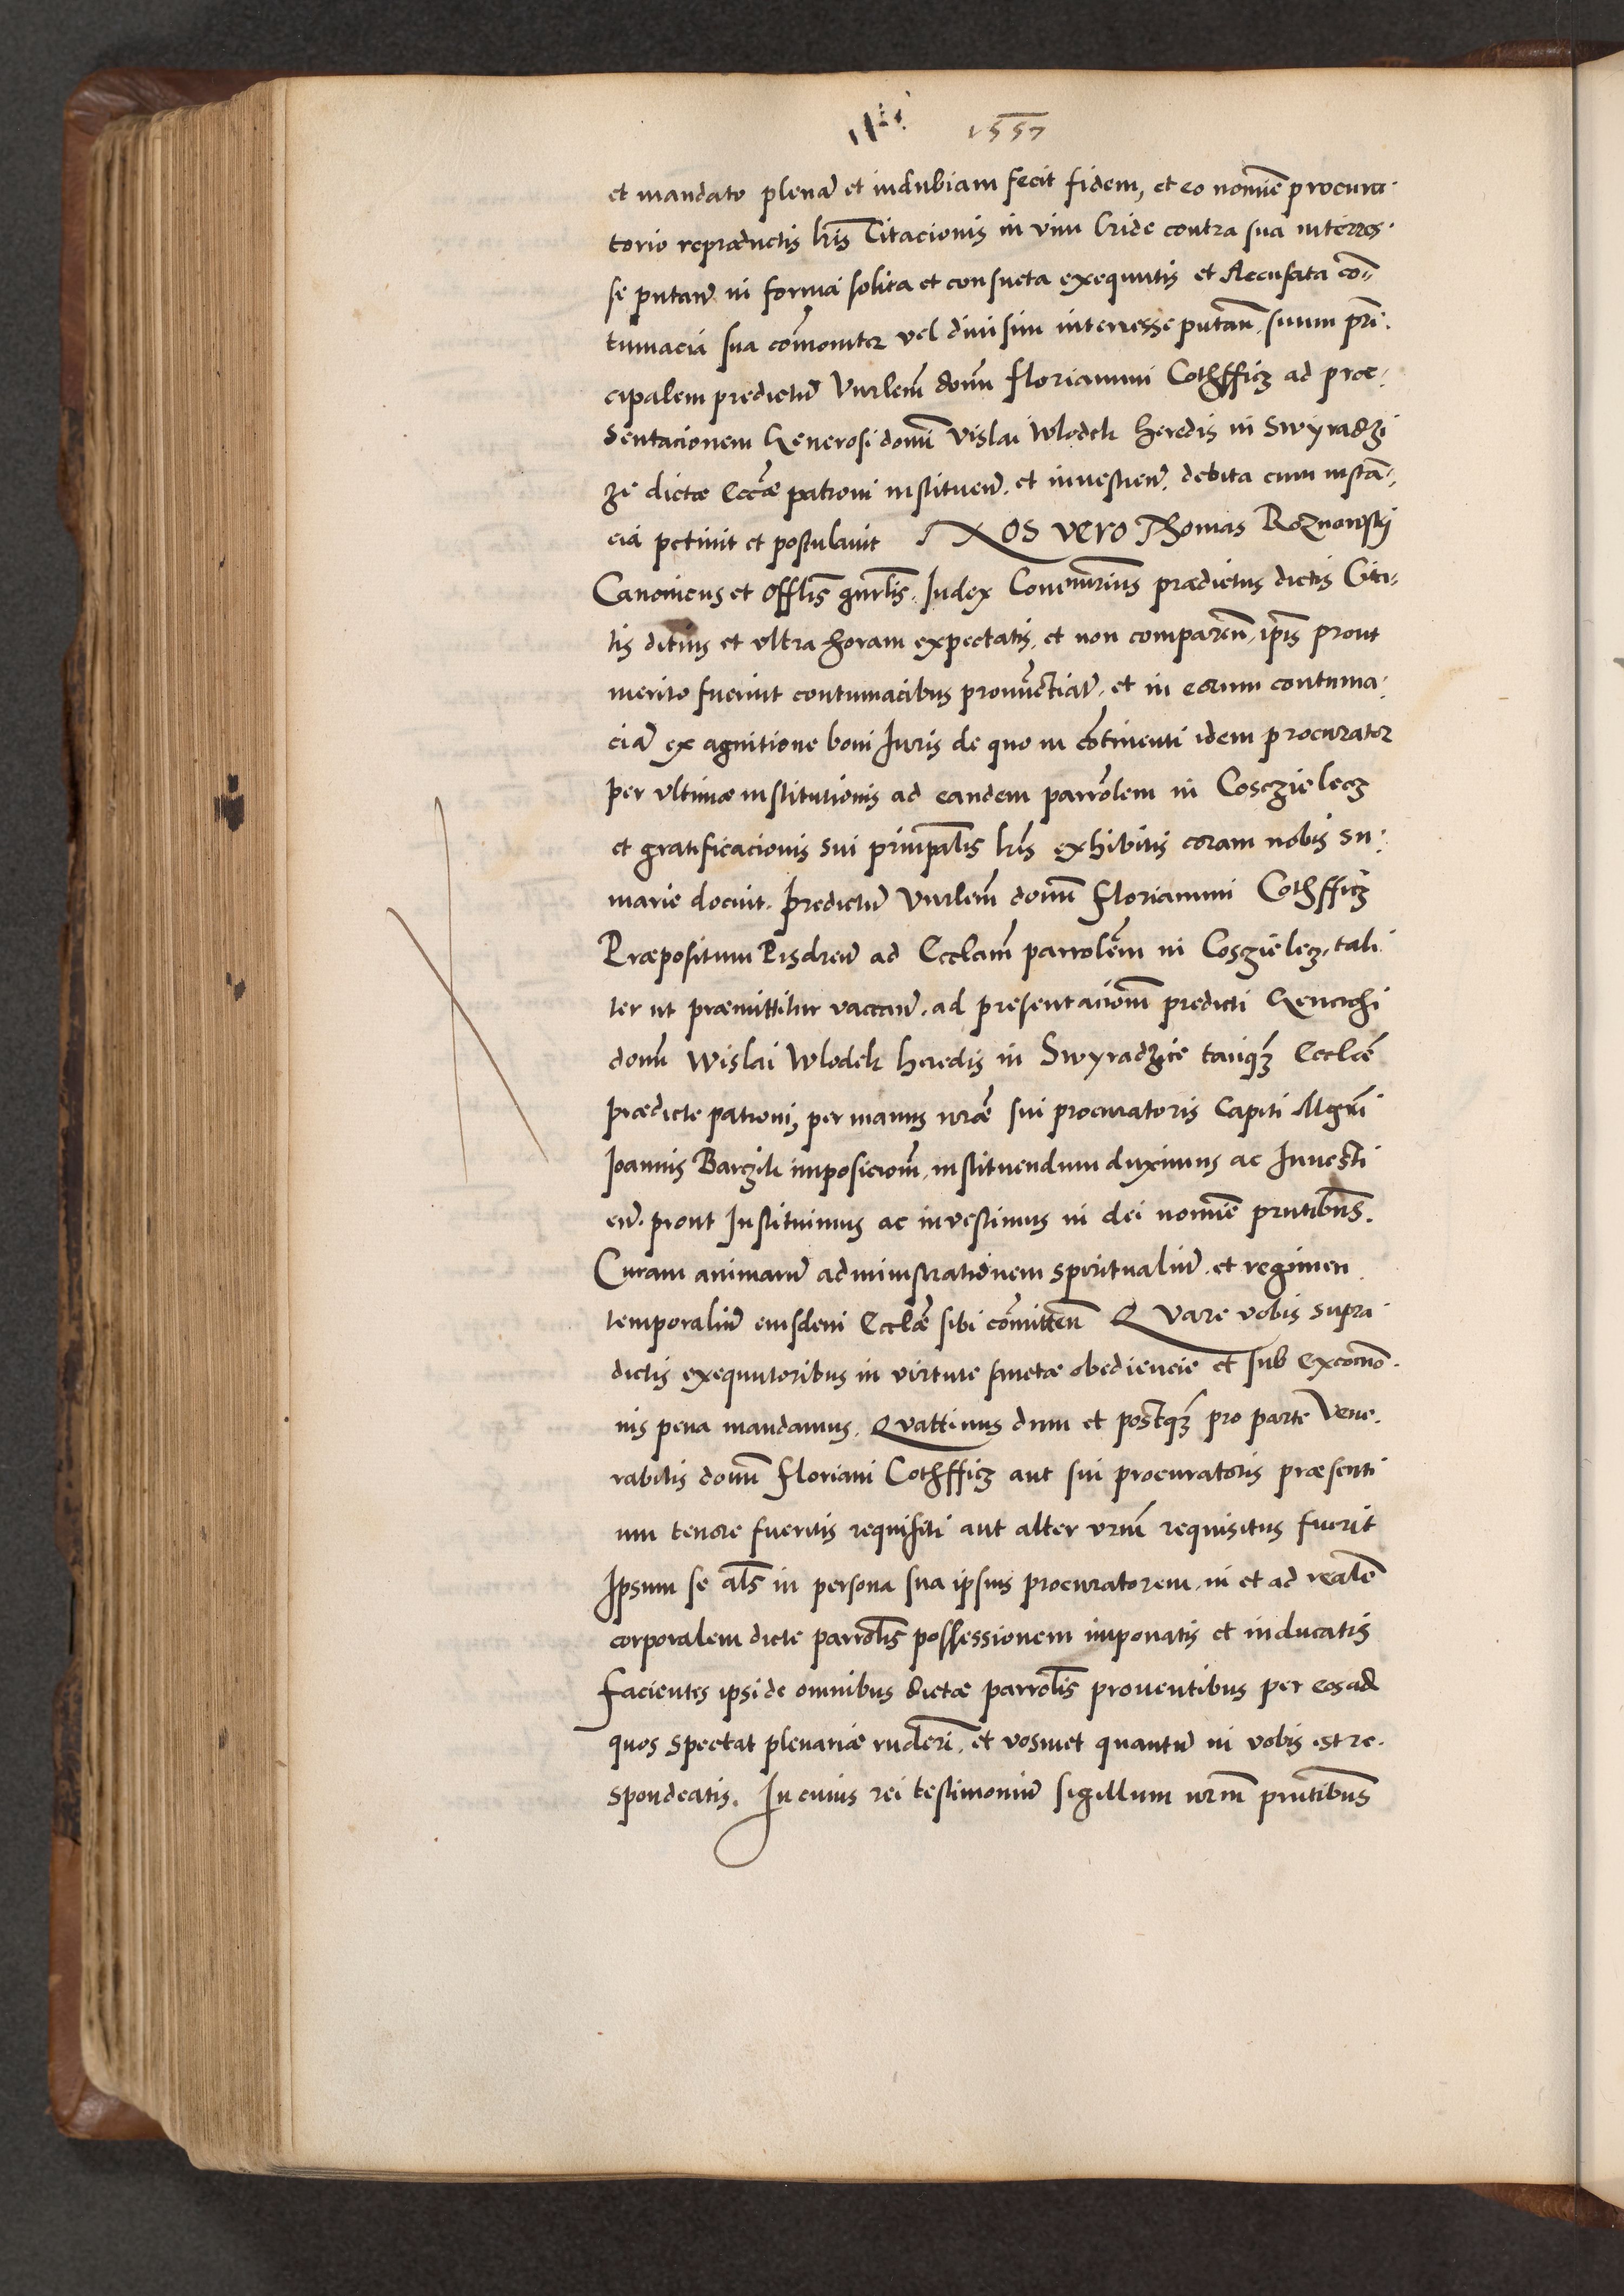 1557
et mandato plenā et indubiam fecit fidem, et eo noīe procura
torio repræductis lris Citacionis in vim Cride contra sua interes
se putan̄ in forma solita et consueta exequutis et Accusata con
tumacia sua cōmoniter vel divisim interresse putan̄. suum prin
cipalem predictū Vnrlem donū Florianum Cothfficz ad præ
sentacionem Generosi domī Vislai Wlodek heredis in Swyradzi
ze dictæ Eccæ patroni instituen̄. et investien̄. debita cum instā
cia petiuit et postulauit Nos vero Thomas Roznowskj
Canonicus et Offlis gnrlis. Iudex Comen̄rius prædictus dictis Cita
tis diutius et vltra horam expectatis, et non comparen̄. ipīs prout
merito fuerint contumacibus pronūctiat̄. et in eorum contuma
ciā ex agnitione boni Iuris de quo in cōtinenti idem procurator
per vltimæ institutionis ad eandem parrolem in Cosczielecz
et gratificacionis sui prinpalis lris exhibitis coram nobis su
marie docuit. Predictū Vnrlem donū Florianum Cothfficz
Præpositum Pisdren̄ ad Ecclam parrolem in Coszielecz, tali
ter ut præmittitur vaccan̄. ad presentacionē predicti Generosi
domī Wislai Wlodek heredis in Swyradzice tanqz Ecclæ
prædicte patroni, per manus nræ sui procuratoris Capiti Mgri
Joannis Barzik imposicionē, instituendum duximus ac Inuesti
en̄. prout Instituimus ac investimus in dei noīe prntibus.
Curam animarū administrationem spiritualiū. et regimen
temporaliū eiusdem Ecclæ sibi cōmitten̄ Quare vobis supra
dictis exequutoribus in virtute sanctæ obediencie et sub excomō
nis pena mandamus. Quattinus dum et postqz pro parte Vene
rabilis domī Floriani Cothfficz aut sui procuratoris præsenti
um tenore fueritis requisiti aut alter vrum requisitus fuerit
Ipsum se als in persona sua ipsius procuratorem, in et ad realē
corporalem dicte parrolis possessionem imponatis et inducatis
Facientes ipsi de omnibus dictæ parrolis prouentibus per eos ad
quos spectat plenariæ rnderi. et vosmet quantū in vobis est re
spondeatis. In cuius rei testimoniū sigillum nrm prntibus